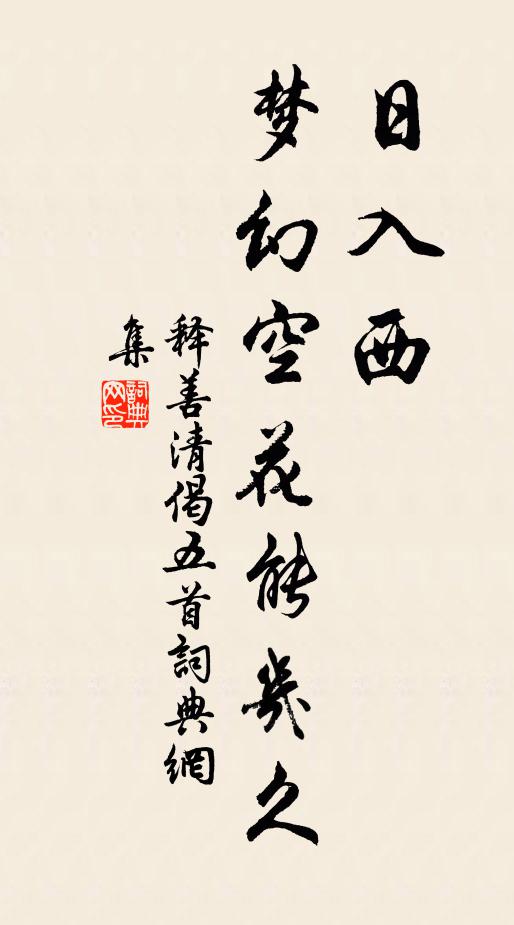 日入西
梦幻空花能几久
释善清偈五首詞典網
集
詞典
网印